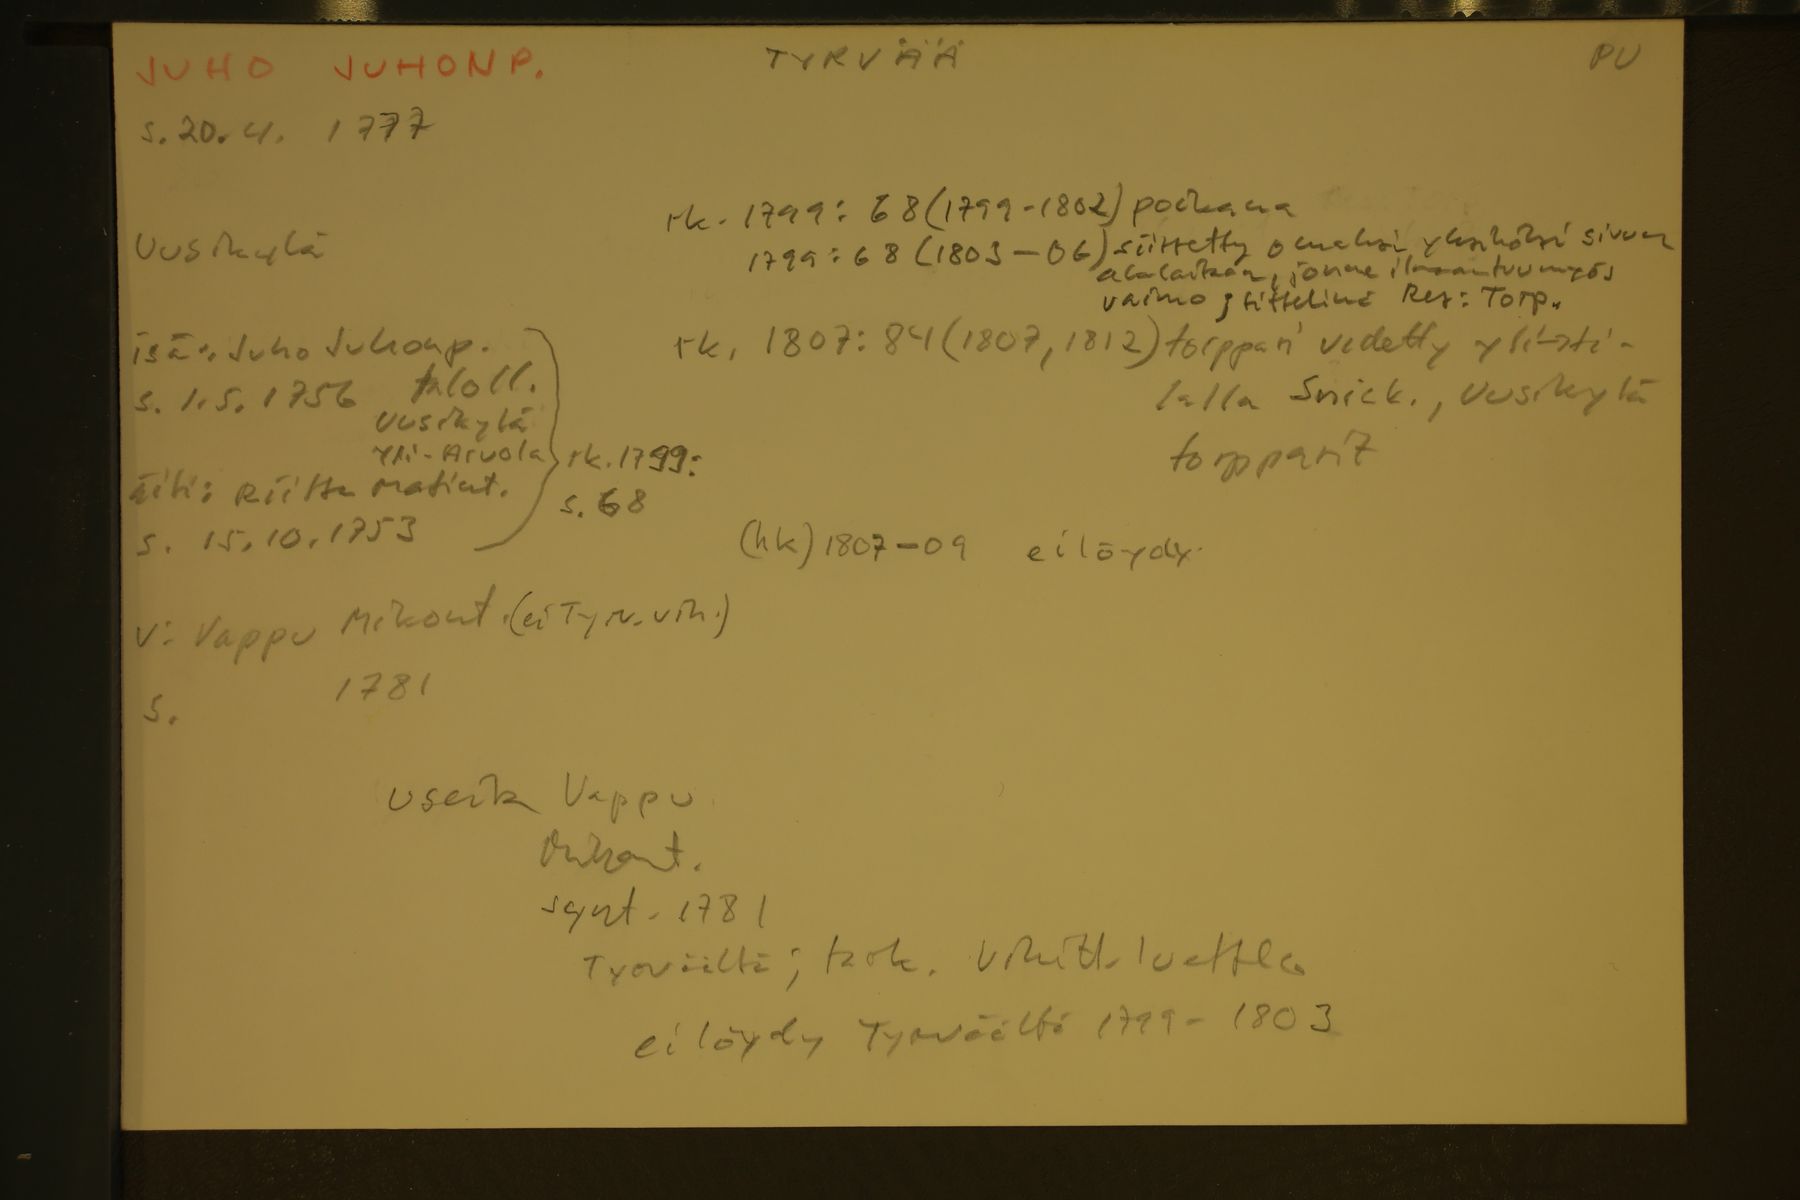 JUHO JUHONP. TYRVÄÄ PU
s. 20.4. 1777
rk. 1799: 68 (1799-1802) poikana
Uusikylä
1799: 68 (1803-06) siirretty omaksi yksiköksi sivun
alalaitaan, jonne ilmaantuu myös
vaimo; tittelinä Res: Torp.
isä: Juho Juhonp.
s. 1.5. 1756 taloll.
Uusikylä
Yli-Arvola
äiti: Riitta Matint.
s. 15.10.1753
rk. 1799:
s. 68
rk. 1807: 84 (1807, 1812) torppari vedetty yli ti-
lalla Snick., Uusikylä
torpparit
(hk) 1807-09 ei löydy
v: Vappu Mikont. (ei Tyrv. vih.)
s. 1781
useita Vappu
Mikont.
synt. 1781
Tyrväältä; tark. vihitt. luettelo
ei löydy Tyrväältä 1799-1803